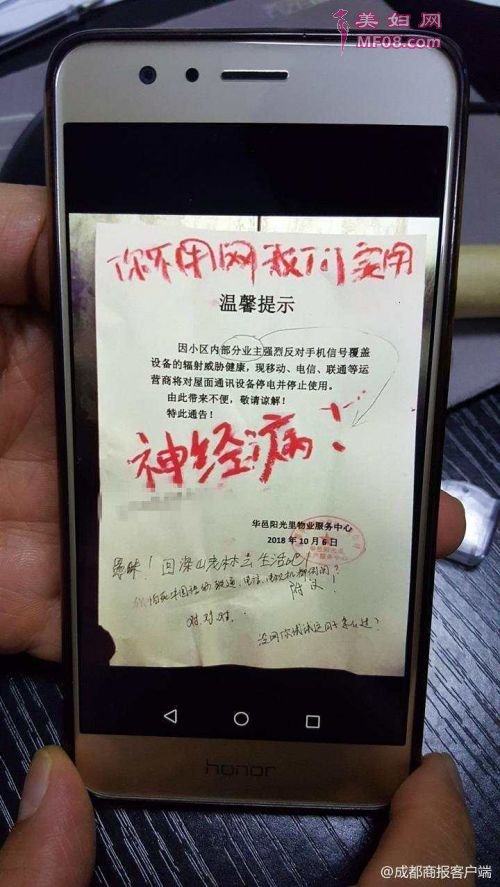 美妇网
MF08.com
你不用网我们要用
温馨提示
因小区内部分业主强烈反对手机信号覆盖
设备的辐射威胁健康，现移动、电信、联通等运
营商将对屋面通讯设备停电并停止使用。
由此带来不便，敬请谅解！
特此通告！
神经病！
华邑阳光里物业服务中心
2018年10月6日
愚昧！回深山老林去生活吧！
附议！
对.对.对.
honor
@成都商报客户端